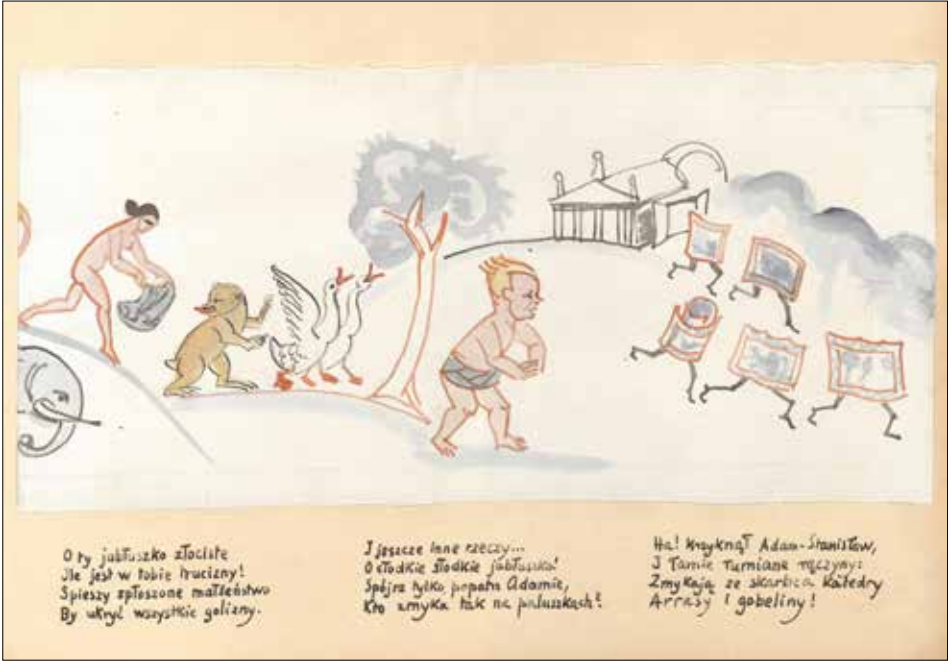 O ty jabłuszko złociste
Ile jest w tobie trucizny!
Spieszy spłoszone małżeństwo
By ukryć wszystkie golizny.
I jeszcze inne rzeczy...
O słodkie słodkie jabłuszko!
Spójrz tylko, Adamie,
Kto umyka tak na paluszkach?
Ha! krzyknął Adam-Stanisław,
I łamie rumiane
Zmykają ze skarbca Katedry
Arrasy i gobeliny!